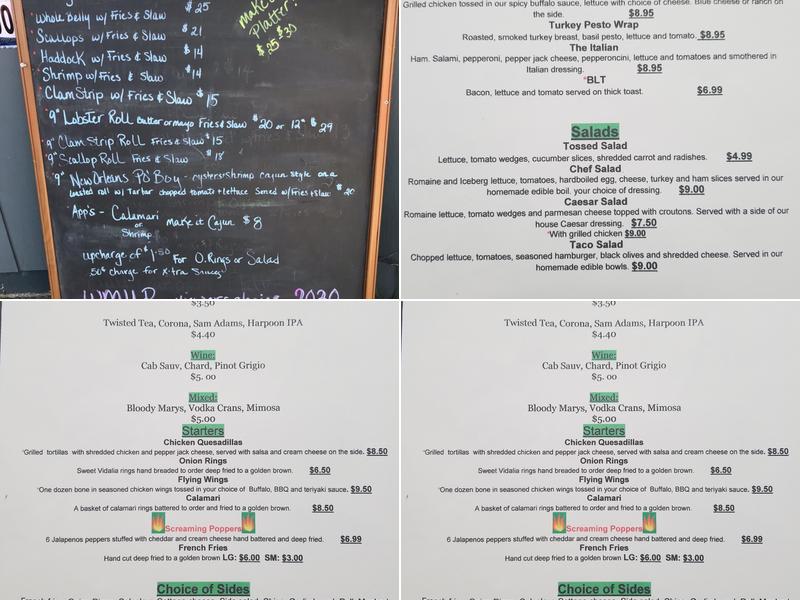 $25
Whole Belly w/Fries & Slaw
Scallops w/Fries & Slaw $21
Haddock w/Fries & Slaw $14
Shrimp w/Fries & Slaw $14
Clam Strip w/ Fries & Slaw $15
9" Lobster Roll Butter or mayo Fries & Slaw $20 or 12" $29
9" Clam Strip Roll Fries & Slaw $15
9" Scallop Roll Fries & Slaw $18
9" New Orleans Po' Boy - oysters or Shrimp cajun style on a
toasted roll w/ Tartar chopped tomato + lettuce Served w/Fries + Slaw $20
App's - Calamari
or
Shrimp
Make it Cajun $8
upcharge of $1.50 For O.Rings or Salad
50¢ charge for X-tra Sauces
2020
Platter!
$25 $30
Grilled chicken tossed in our spicy buffalo sauce, lettuce with choice of cheese. Blue cheese or ranch on
the side. $8.95
Turkey Pesto Wrap
Roasted, smoked turkey breast, basil pesto, lettuce and tomato. $8.95
The Italian
Ham. Salami, pepperoni, pepper jack cheese, pepperoncini, lettuce and tomatoes and smothered in
Italian dressing. $8.95
*BLT
Bacon, lettuce and tomato served on thick toast. $6.99
Salads
Tossed Salad
Lettuce, tomato wedges, cucumber slices, shredded carrot and radishes. $4.99
Chef Salad
Romaine and Iceberg lettuce, tomatoes, hardboiled egg, cheese, turkey and ham slices served in our
homemade edible boil. your choice of dressing. $9.00
Caesar Salad
Romaine lettuce, tomato wedges and parmesan cheese topped with croutons. Served with a side of our
house Caesar dressing. $7.50
*With grilled chicken $9.00
Taco Salad
Chopped lettuce, tomatoes, seasoned hamburger, black olives and shredded cheese. Served in our
homemade edible bowls. $9.00
$3.50
Twisted Tea, Corona, Sam Adams, Harpoon IPA
$4.40
Wine:
Cab Sauv, Chard, Pinot Grigio
$5. 00
Mixed:
Bloody Marys, Vodka Crans, Mimosa
$5.00
Starters
Chicken Quesadillas
*Grilled tortillas with shredded chicken and pepper jack cheese, served with salsa and cream cheese on the side. $8.50
Onion Rings
Sweet Vidalia rings hand breaded to order deep fried to a golden brown. $6.50
Flying Wings
*One dozen bone in seasoned chicken wings tossed in your choice of Buffalo, BBQ and teriyaki sauce. $9.50
Calamari
A basket of calamari rings battered to order and fried to a golden brown. $8.50
Screaming Poppers
6 Jalapenos peppers stuffed with cheddar and cream cheese hand battered and deep fried. $6.99
French Fries
Hand cut deep fried to a golden brown LG: $6.00 SM: $3.00
Choice of Sides
$3.50
Twisted Tea, Corona, Sam Adams, Harpoon IPA
$4.40
Wine:
Cab Sauv, Chard, Pinot Grigio
$5. 00
Mixed:
Bloody Marys, Vodka Crans, Mimosa
$5.00
Starters
Chicken Quesadillas
*Grilled tortillas with shredded chicken and pepper jack cheese, served with salsa and cream cheese on the side. $8.50
Onion Rings
Sweet Vidalia rings hand breaded to order deep fried to a golden brown. $6.50
Flying Wings
*One dozen bone in seasoned chicken wings tossed in your choice of Buffalo, BBQ and teriyaki sauce. $9.50
Calamari
A basket of calamari rings battered to order and fried to a golden brown. $8.50
Screaming Poppers
6 Jalapenos peppers stuffed with cheddar and cream cheese hand battered and deep fried. $6.99
French Fries
Hand cut deep fried to a golden brown LG: $6.00 SM: $3.00
Choice of Sides